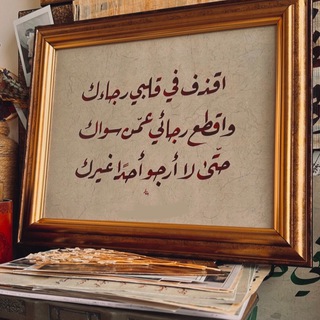 اقذف في قلبي رجاءك
واقطع رجائي عمّن سواك
حتّىٰ لا أرجو أحدًا غيرك